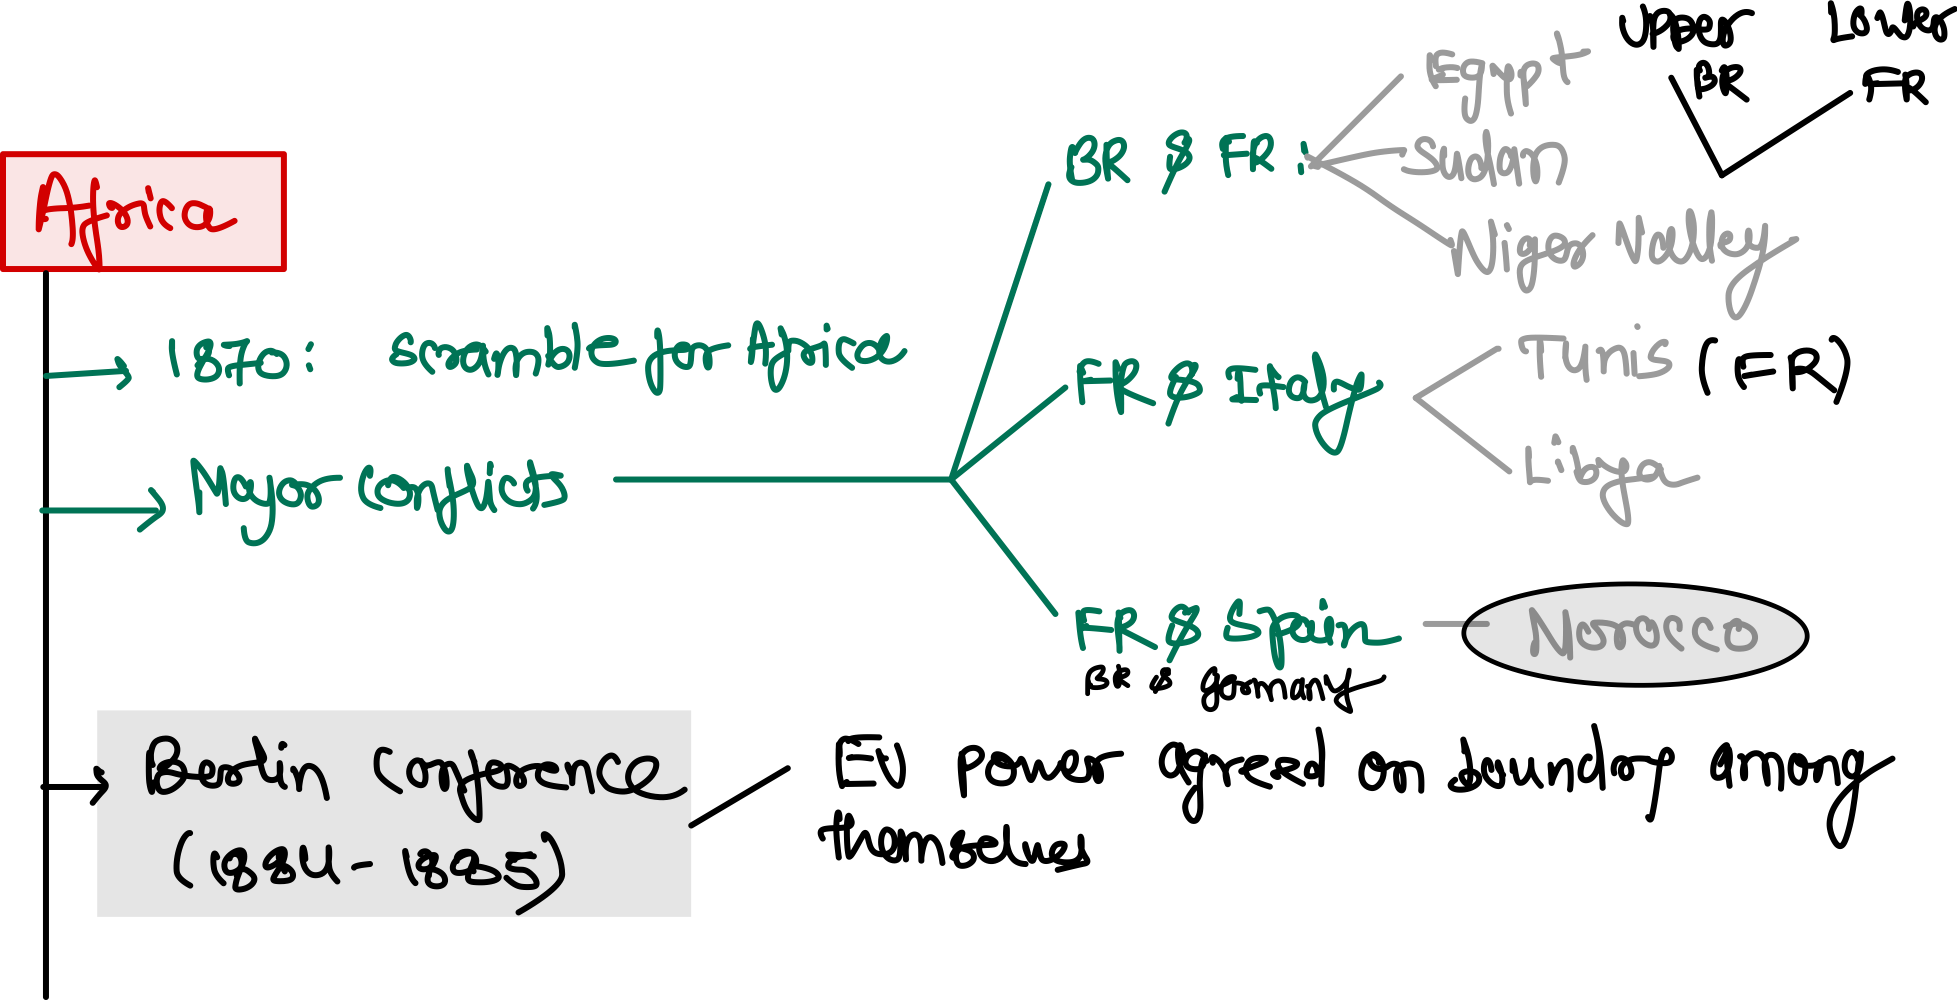 Africa
1870: Scramble for Africa
Major conflicts
BR & FR:
Egypt
Sudan
Niger Valley
Upper BR
Lower FR
FR & Italy
Tunis (FR)
Libya
FR & Spain
BR & Germany
Morocco
Berlin Conference
(1884-1885)
EU power agreed on boundry among
themselves